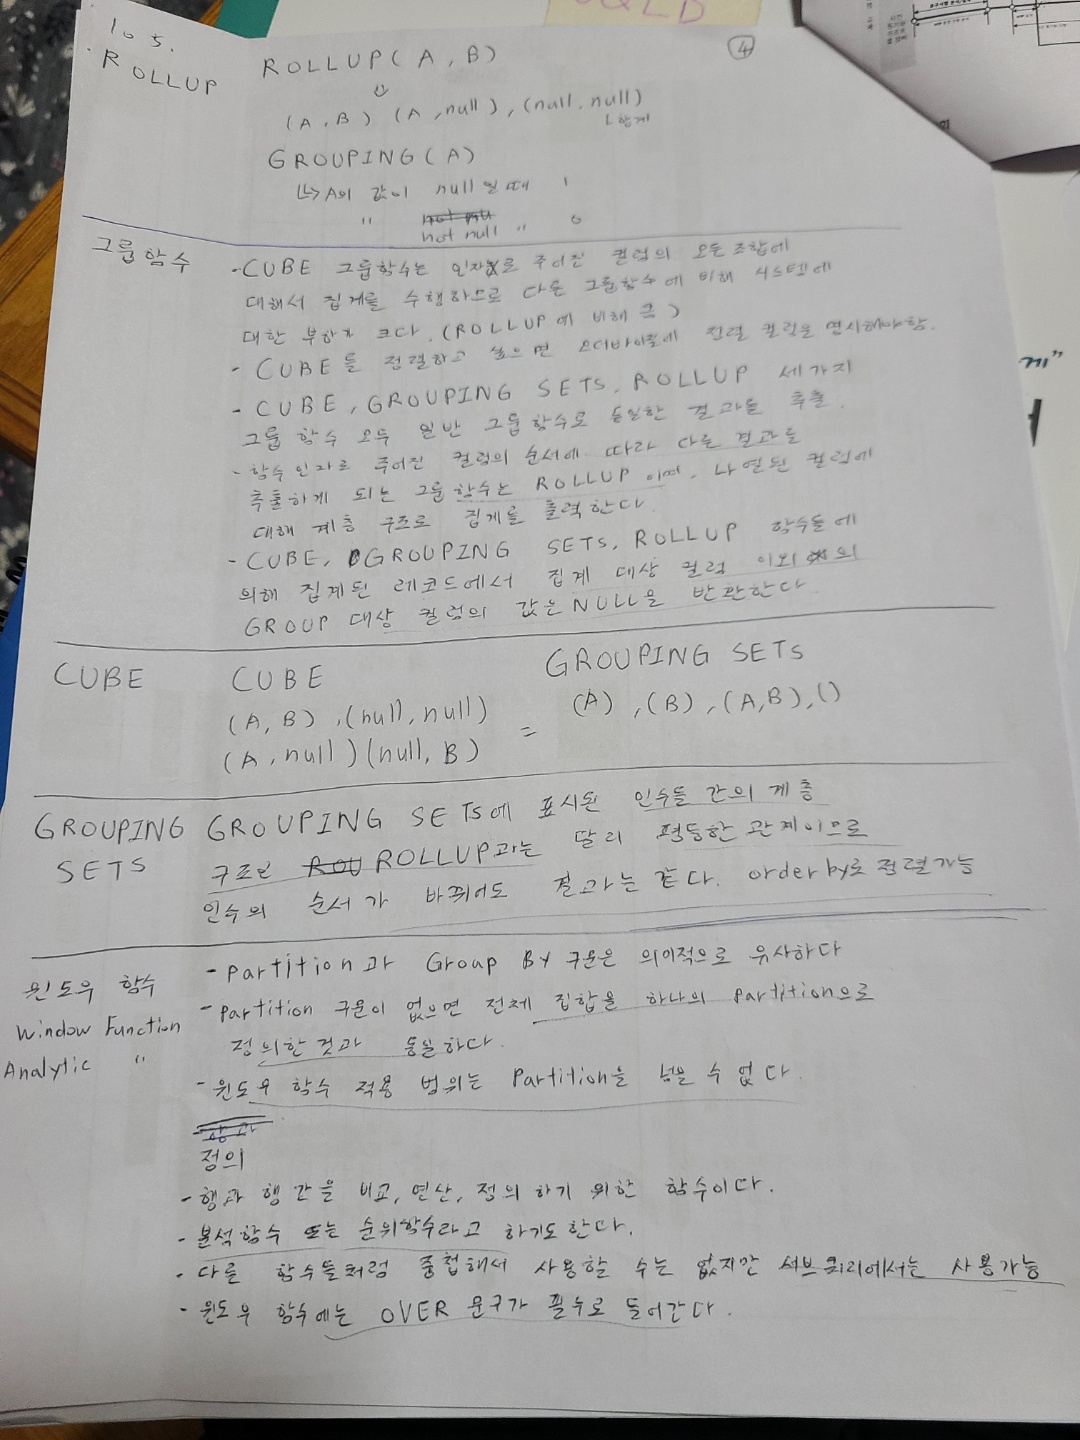 SQLD
105.
ROLLUP
ROLLUP(A, B)
④
(A, B) (A, null), (null, null)
합계
GROUPING(A)
↳ A의 값이 null 일 때 1
" not null " 0
그룹함수
- CUBE 그룹함수는 인자로 주어진 컬럼의 모든 조합에
대해서 집계를 수행하므로 다른 그룹함수에 비해 시스템에
대한 부하가 크다. (ROLLUP에 비해 큼)
- CUBE를 정렬하고 싶으면 오더바이절에 정렬 컬럼을 명시해야함.
- CUBE, GROUPING SETS, ROLLUP 세가지
그룹 함수 모두 일반 그룹함수로 동일한 결과를 추출.
- 함수 인자로 주어진 컬럼의 순서에 따라 다른 결과를
추출하게 되는 그룹 함수는 ROLLUP 이며, 나열된 컬럼에
대해 계층 구조로 집계를 출력한다.
- CUBE, GROUPING SETS, ROLLUP 함수들에
의해 집계된 레코드에서 집계 대상 컬럼 이외의
GROUP 대상 컬럼의 값은 NULL을 반환한다.
CUBE
CUBE
GROUPING SETS
(A, B), (null, null)
(A), (B), (A,B), ()
=
(A, null) (null, B)
GROUPING SETS
GROUPING SETS에 표시된 인수들 간의 계층
구조인 ROLLUP과는 달리 평등한 관계이므로
인수의 순서가 바뀌어도 결과는 같다. order by로 정렬가능
윈도우 함수
Window Function
Analytic "
- Partition과 Group By 구문은 의미적으로 유사하다
- Partition 구문이 없으면 전체 집합을 하나의 Partition으로
정의한 것과 동일하다.
- 윈도우 함수 적용 범위는 Partition을 넘을 수 없다.
정의
- 행과 행 간을 비교, 연산, 정의 하기 위한 함수이다.
- 분석함수 또는 순위함수라고 하기도 한다.
- 다른 함수들처럼 중첩해서 사용할 수는 없지만 서브쿼리에서는 사용가능
- 윈도우 함수에는 OVER 문구가 필수로 들어간다.